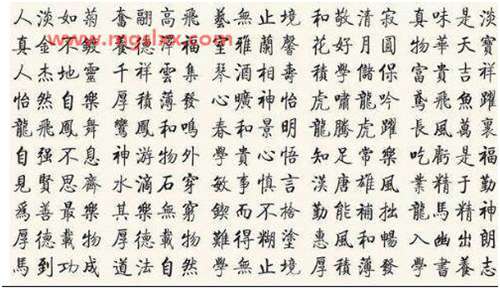 人淡如菊 奮翮高飛 藝無止境 和敬清寂 真味是淡
真金不鍍 雅蘭馨 花好月圓 物華天寶
人杰地靈 千祥雲集 琴酒相壽 積學儲 富貴吉
怡然自樂 厚積薄發 心曠神怡 虎嘯龍吟 鳶飛魚躍
龍飛鳳舞 鸞鳳和鳴 春和景明 龍騰虎躍 長風萬裏
自强不息 神游物外 學貴心悟 知足常樂 吃虧是福
見賢思齊 水滴石穿 敏事慎言 漢唐雄風 業精于勤
爲善最樂 其樂無窮 鍥而不捨 勤能補拙 龍馬精神
厚德載物 厚德載物 難得糊塗 惠風和暢 入幽出朗
馬到功成 道法自然 學無止境 厚積薄發 學書養志
www.mgslxx.com